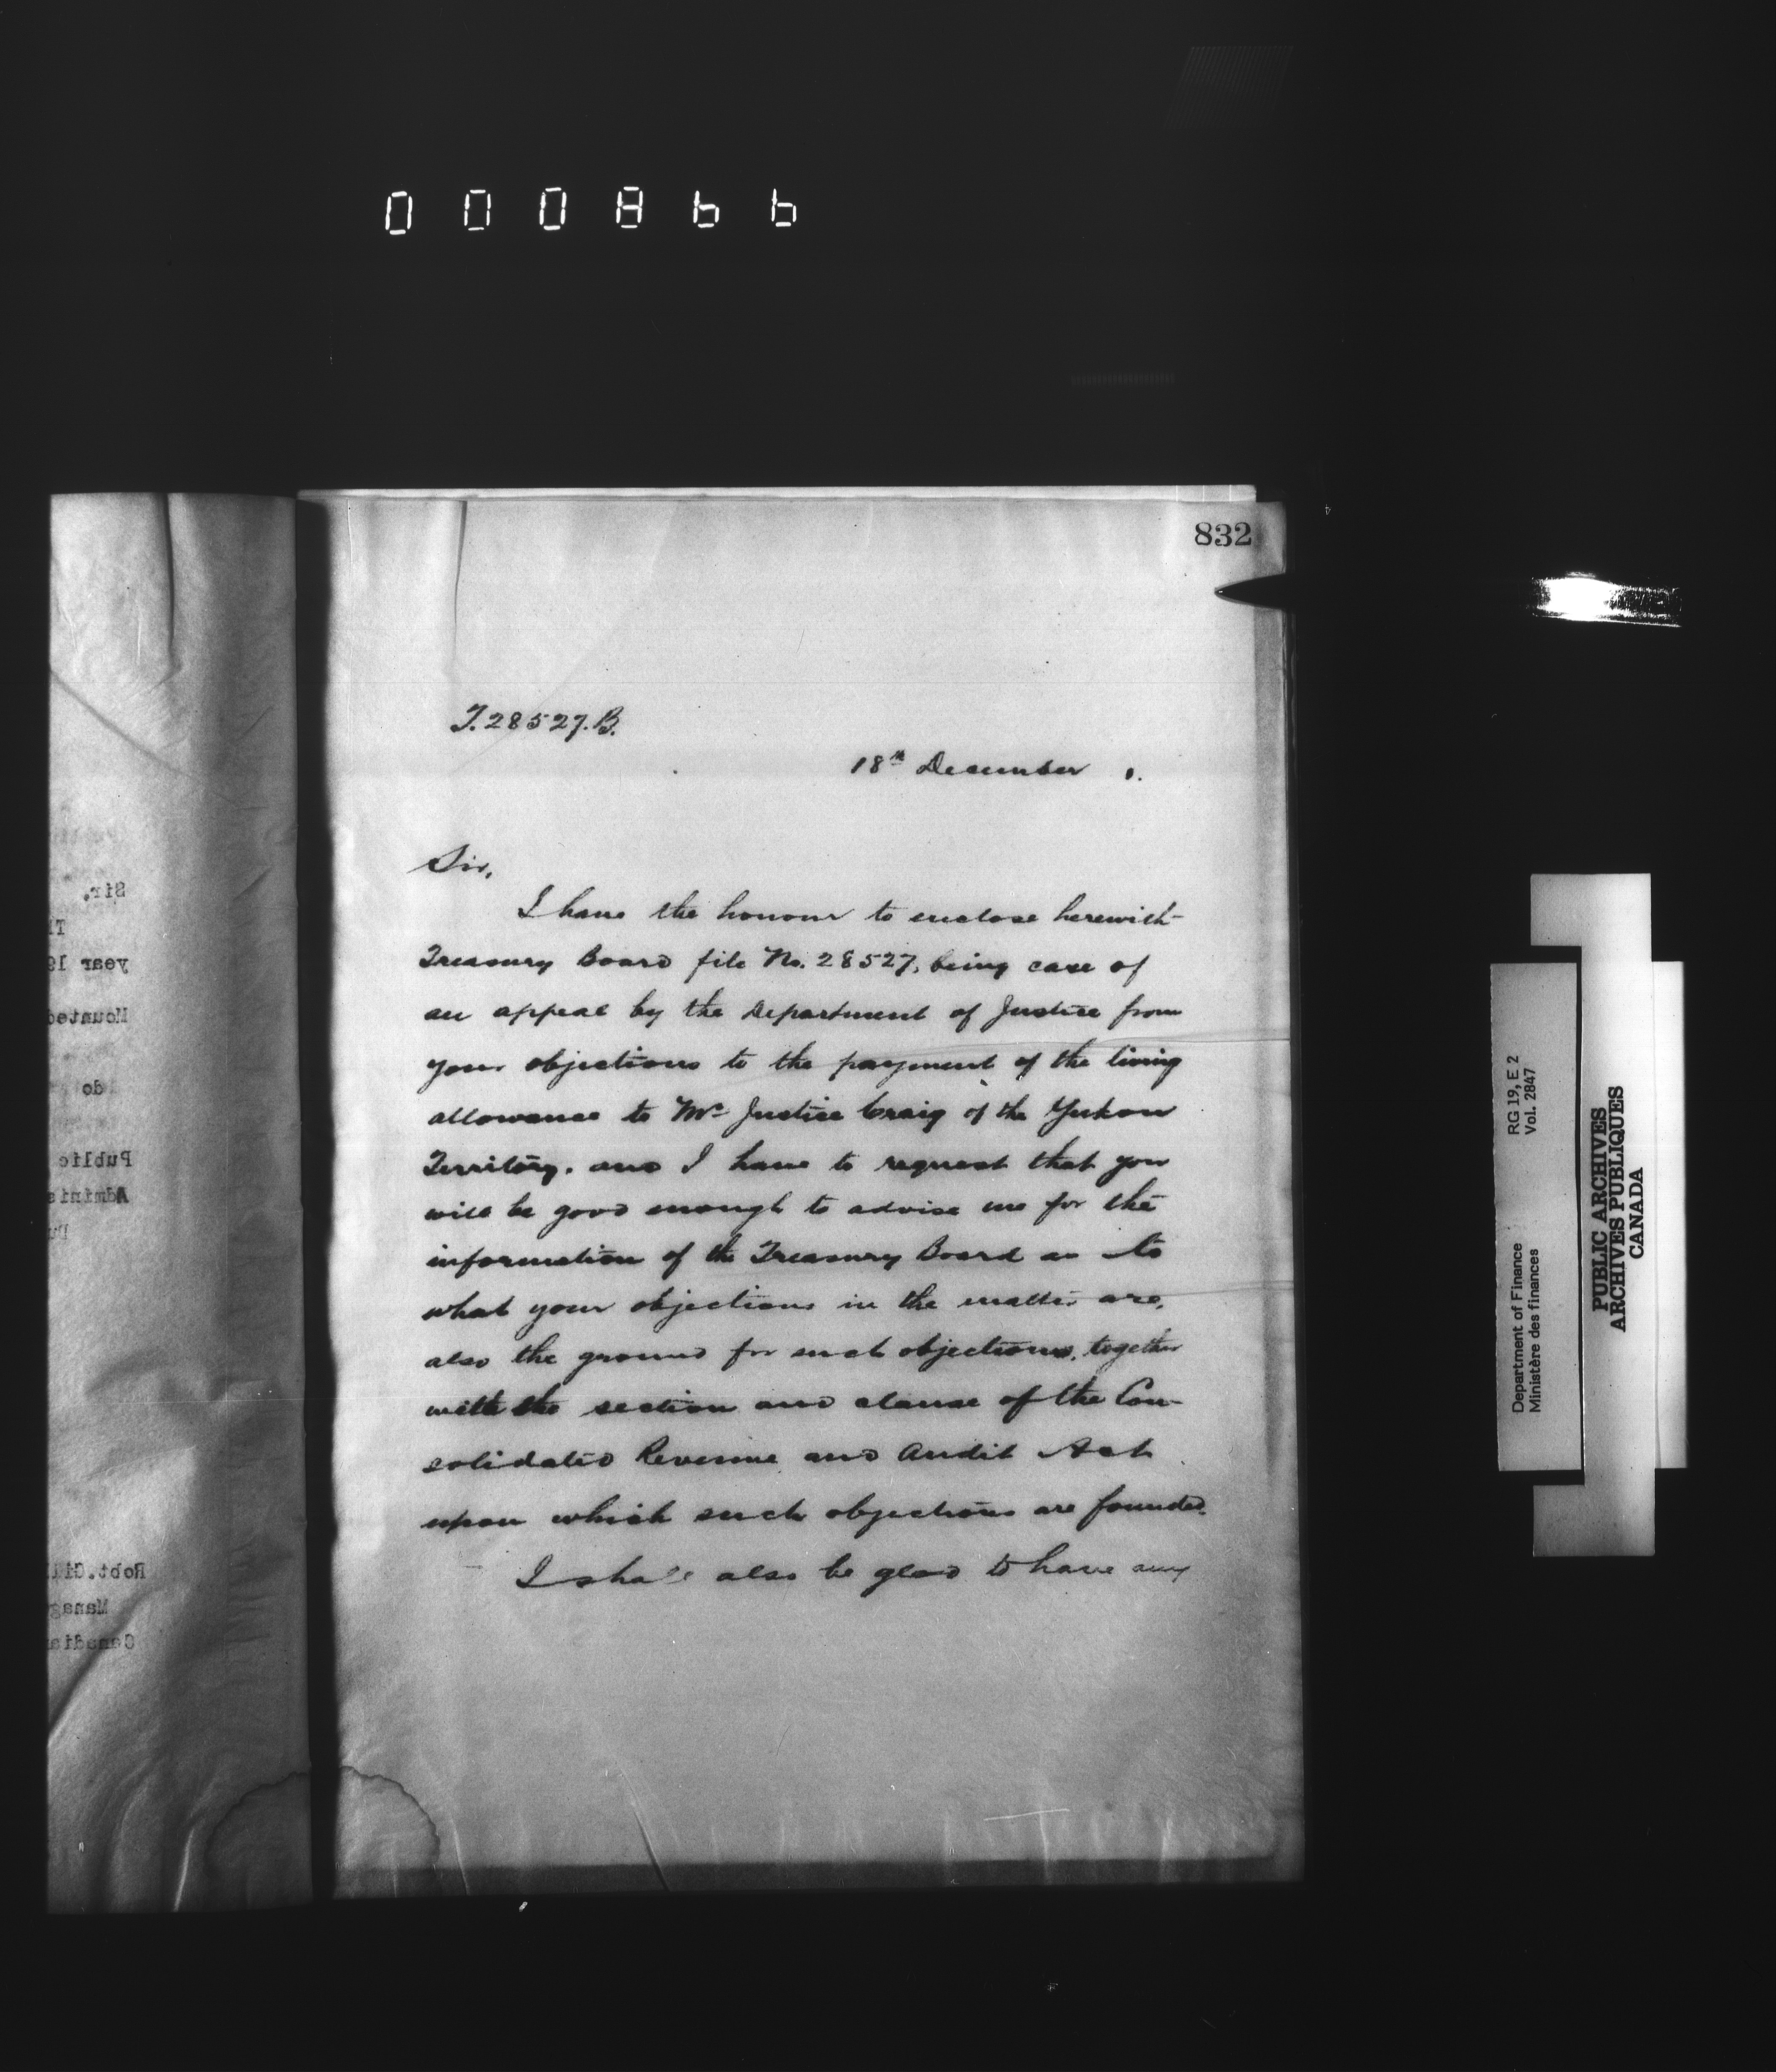 000866
832
T.28527.B.
18th December 1.
Sir,
I have the honour to enclose herewith
Treasury Board file No. 28527, being case of
an appeal by the Department of Justice from
your objections to the payment of the living
allowance to Mr Justice Craig of the Yukon
Territory. and I have to request that you
will be good enough to advise me for the
information of the Treasury Board as to
what your objections in the matter are,
also the ground for such objections, together
with the section and clause of the Con-
solidated Revenue and Audit Act
upon which such objections are founded.
I shall also be glad to have any
Sir,
year 19
Mounted
do
Public
Adminis
Robt. Gill
Manag
Canadia
RG 19, E 2
Vol. 2847
Department of Finance
Ministère des finances
PUBLIC ARCHIVES
ARCHIVES PUBLIQUES
CANADA